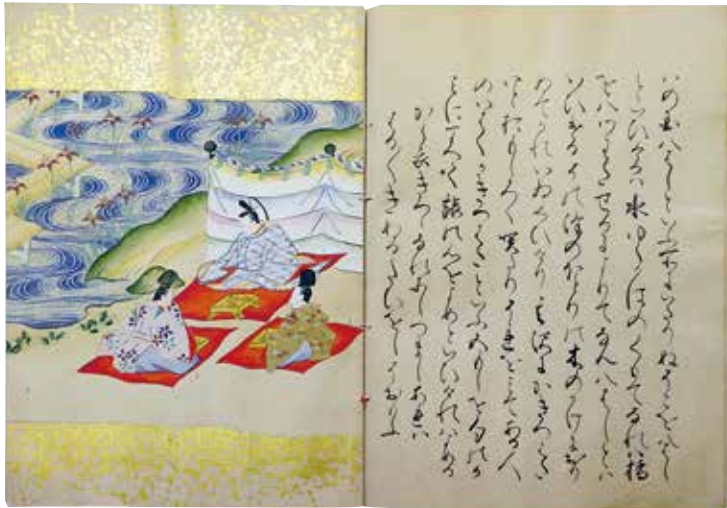 はの国八はしといふ所にいたりぬそこを八はし
といひけるは水ゆく河のくもてなれは橋
を八つわたせるによりてなん八はしとは
いひけるその沢のほとりの木のかけにおり
ゐてかれいゐくひけり其沢にかきつはた
いとおもしろく咲たりそれをみてある人
のいはくかきつはたといふ五もしを句のか
みにすへて旅の心をよめといひけれはよめる
から衣きつゝなれにしつましあれは
はる〳〵きぬるたひをしそおもふ